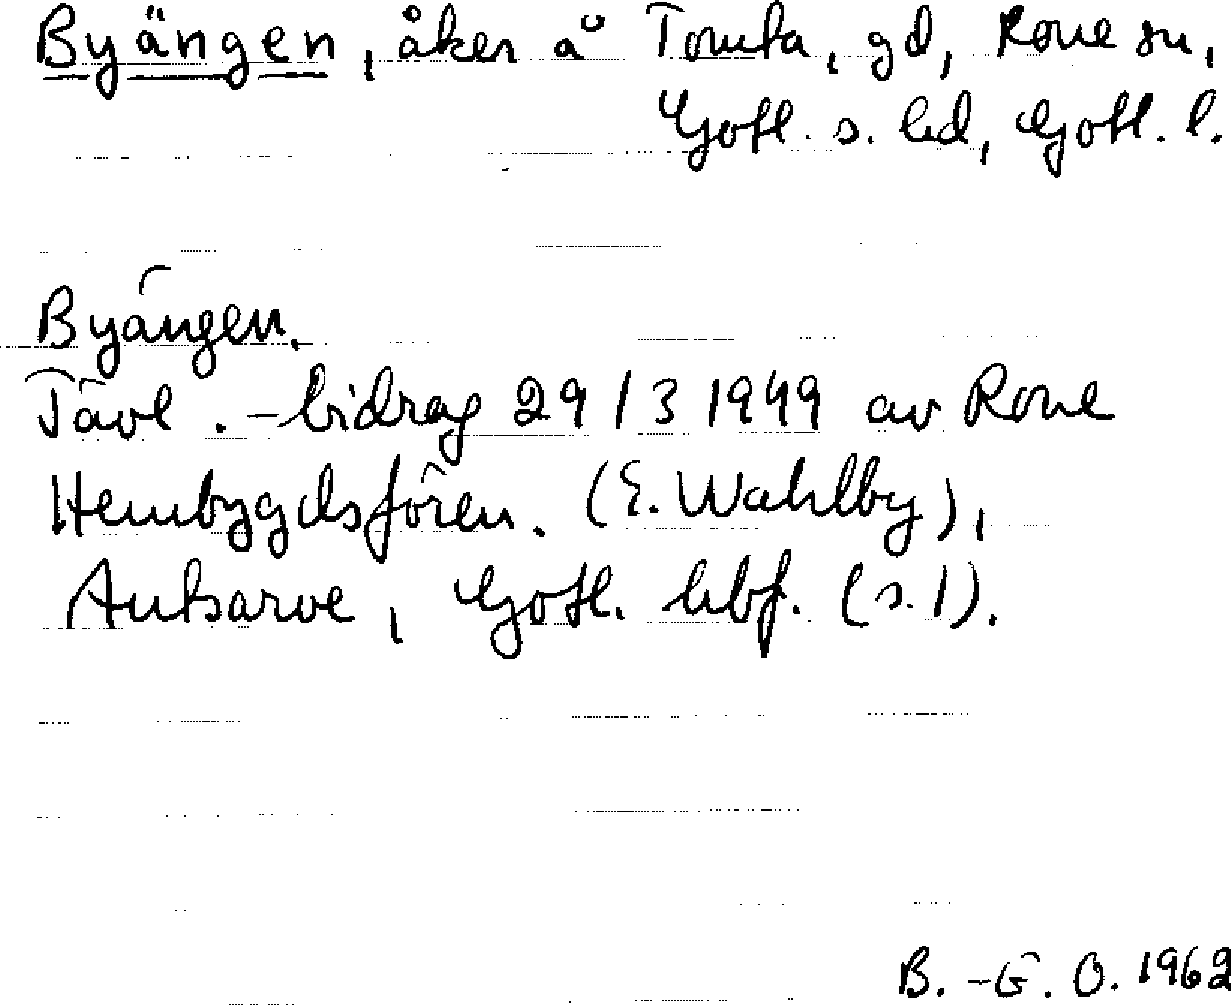 Byängen, åker å Tomta, gd, Rone sn,
Gotl. s. hd, Gotl. l.
Byängen.
Tävl.-bidrag 29/3 1949 av Rone
Hembygdsfören. (E. Wahlby),
Autsarve, Gotl. hbf. (s. 1).
B.-G. O. 1962